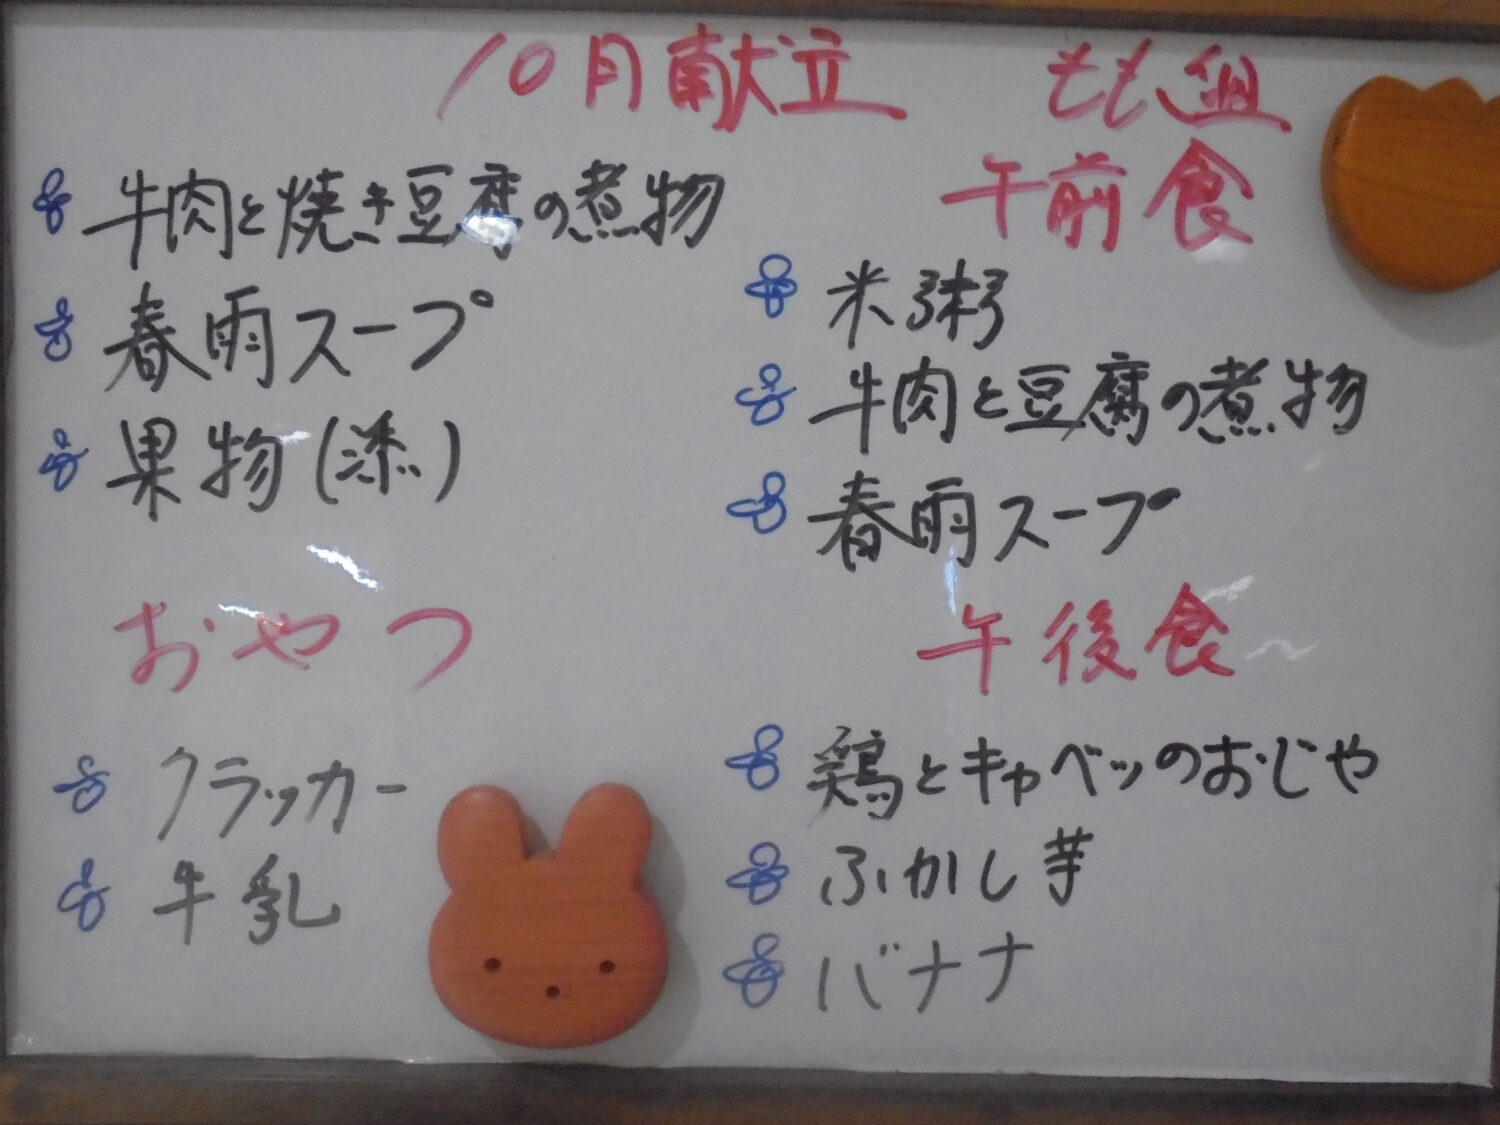 10月献立
牛肉と焼き豆腐の煮物
春雨スープ
果物(柿)
おやつ
クラッカー
牛乳
もも組
午前食
米粥
牛肉と豆腐の煮物
春雨スープ
午後食
鶏とキャベツのおじや
ふかし芋
バナナ